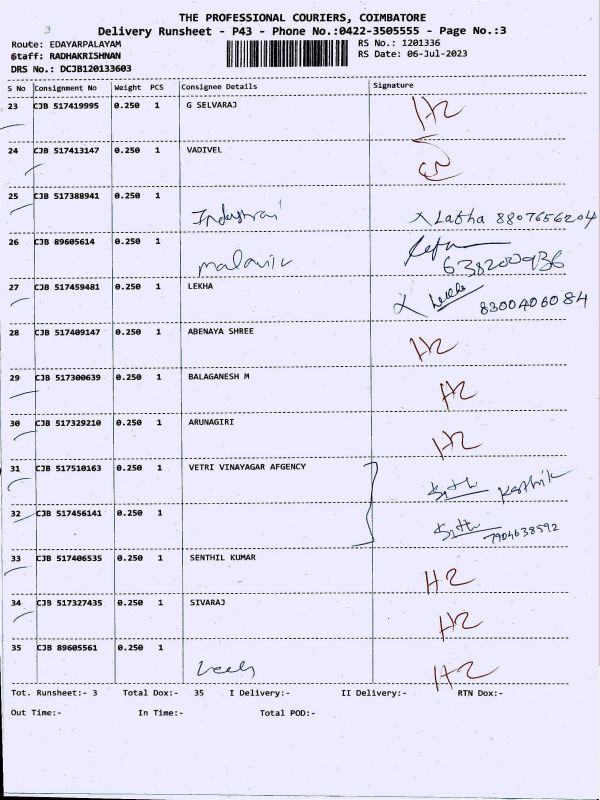 THE PROFESSIONAL COURIERS, COIMBATORE
Delivery Runsheet - P43 - Phone No.:0422-3505555 - Page No.:3
Route: EDAYARPALAYAM RS No.: 1201336
Staff: RADHAKRISHNAN RS Date: 06-Jul-2023
DRS No.: DCJB120133603
S No Consignment No Weight PCS Consignee Details Signature
23 CJB 517419995 0.250 1 G SELVARAJ H2
24 CJB 517413147 0.250 1 VADIVEL
25 CJB 517388941 0.250 1 X Latha 8807656204
26 CJB 89605614 0.250 1 malavik 638200936
27 CJB 517459481 0.250 1 LEKHA X Lekha 8300406084
28 CJB 517409147 0.250 1 ABENAYA SHREE H2
29 CJB 517300639 0.250 1 BALAGANESH M H2
30 CJB 517329210 0.250 1 ARUNAGIRI H2
31 CJB 517510163 0.250 1 VETRI VINAYAGAR AFGENCY Karthik
32 CJB 517456141 0.250 1 7904638592
33 CJB 517406535 0.250 1 SENTHIL KUMAR H2
34 CJB 517327435 0.250 1 SIVARAJ H2
35 CJB 89605561 0.250 1 H2
Tot. Runsheet:- 3 Total Dox:- 35 I Delivery:- II Delivery:- RTN Dox:-
Out Time:- In Time:- Total POD:-